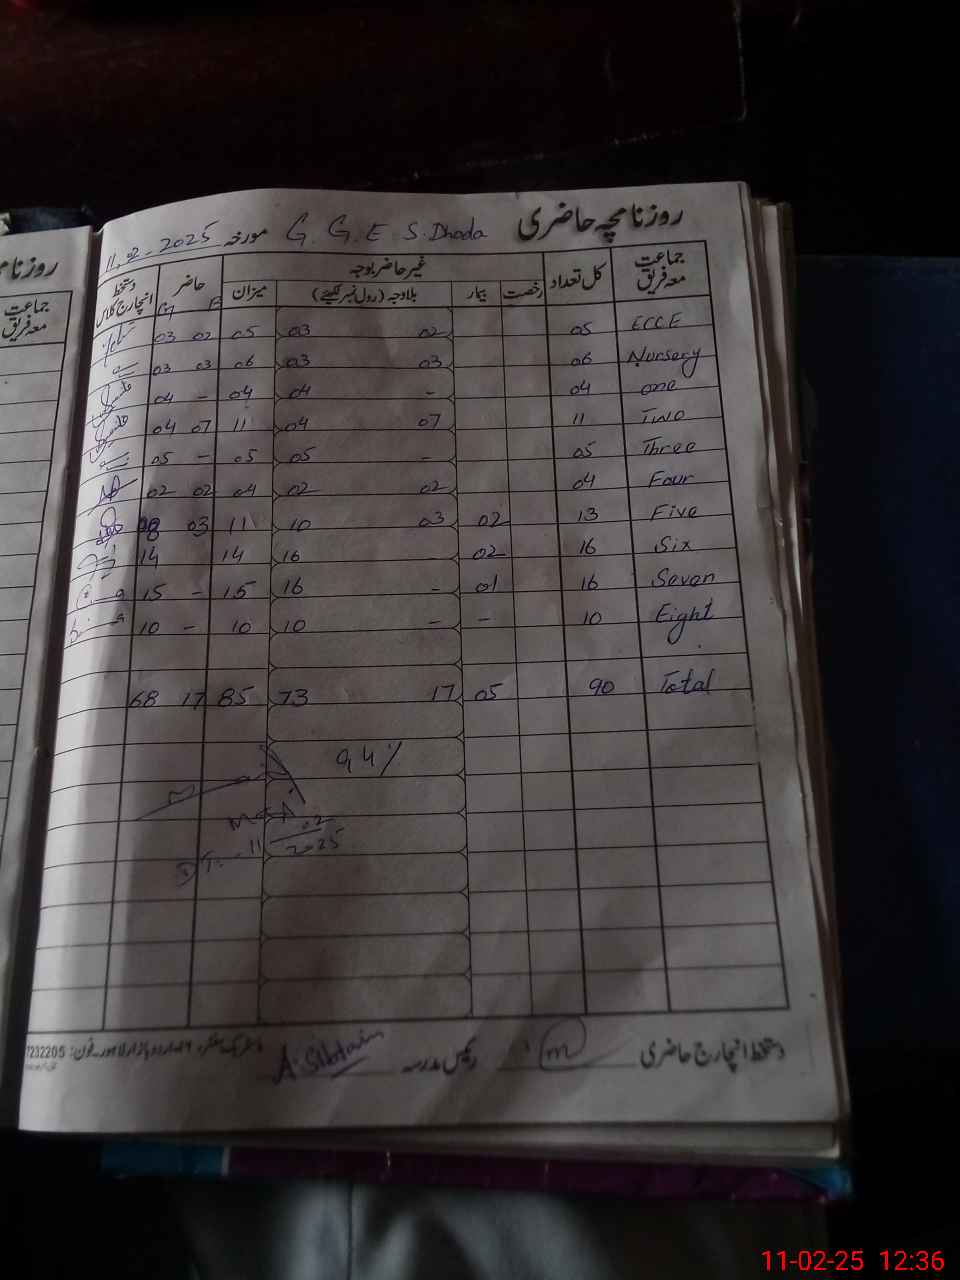 روزنامچہ حاضری G. G. E S. Dhoda مورخہ 11-02-2025
جماعت معہ فریق کل تعداد غیر حاضر باوجہ حاضر دستخط انچارج کلاس
رخصت بیمار بلاوجہ (رول نمبر لکھیئے) میزان
ECCE 05 02 03 05 02 03
Nursery 06 03 03 06 03 03
one 04 - 04 04 - 04
Two 11 07 04 11 07 04
Three 05 - 05 05 - 05
Four 04 02 02 04 02 02
Five 13 02 03 10 11 03 08
Six 16 02 16 14 14
Seven 16 01 - 16 15 - 15
Eight 10 - - 10 10 - 10
Total 90 05 17 73 85 17 68
94%
MEA
DT:- 11 02 2025
دستخط انچارج حاضری m رئیس مدرسہ A. Sibtain
7232205
روزنا
جماعت
معہ فریق
11-02-25 12:36